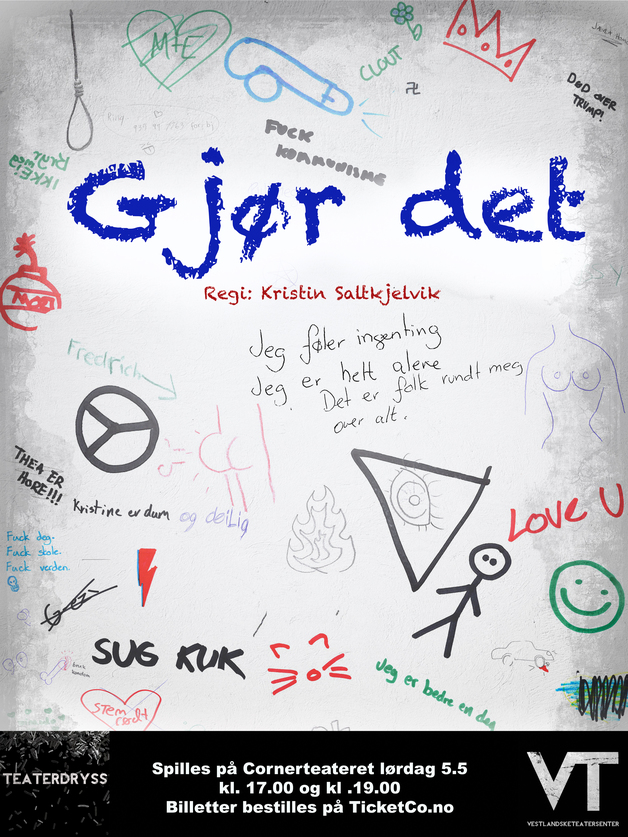 M+E
CLOUT
DØD OVER
TRUMP!
FUCK
KOMMUNISME
Gjør det
Regi: Kristin Saltkjelvik
Jeg føler ingenting
Jeg er helt alene
Det er folk rundt meg
over alt.
Fredrich
THEA ER
HORE!!!
Kristine er dum og deilig
LOVE U
Fuck deg.
Fuck skole.
Fuck verden.
SUG KUK
Jeg er bedre en deg
STEM
rødt
TEATERDRYSS
Spilles på Cornerteateret lørdag 5.5
kl. 17.00 og kl .19.00
Billetter bestilles på TicketCo.no
VT
VESTLANDSKETEATERSENTER